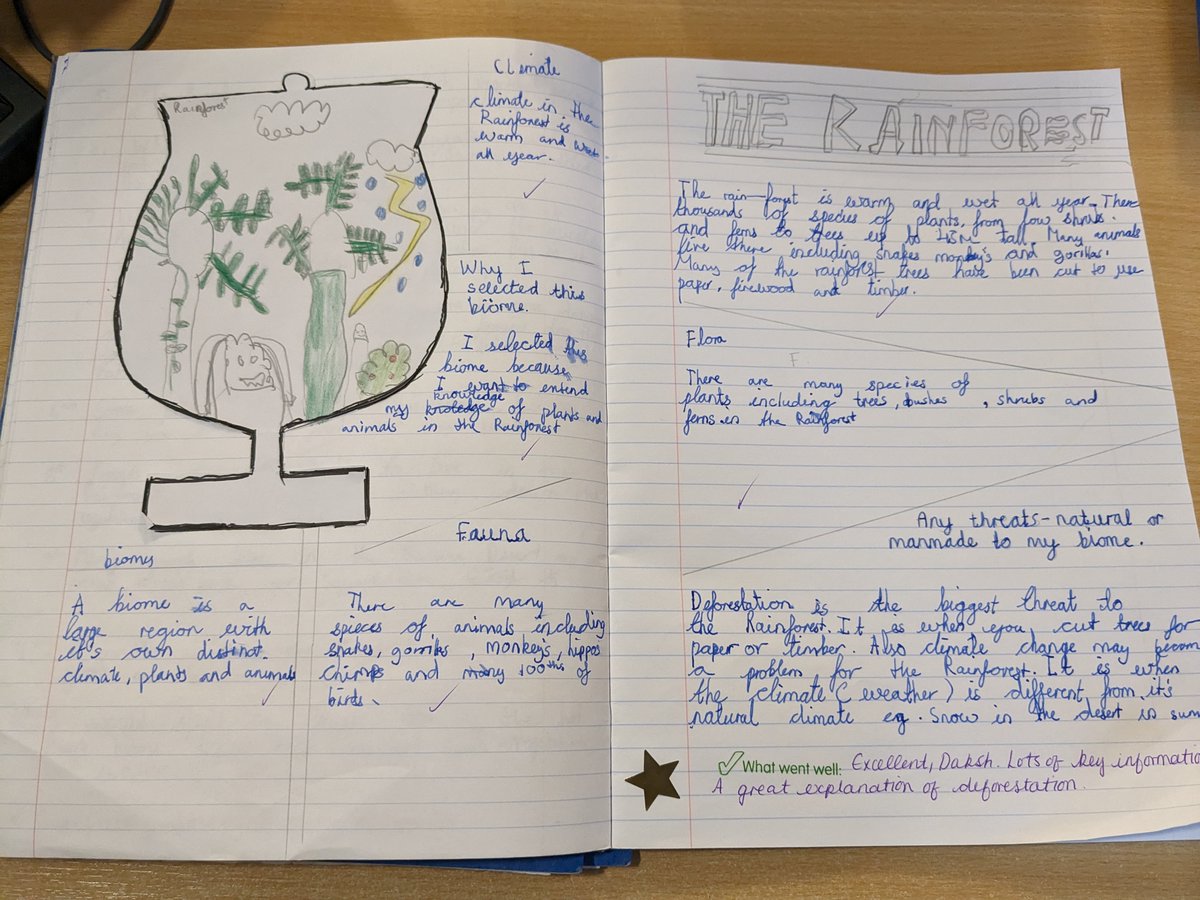 Rainforest
Climate
climate in the
Rainforest is
warm and wet
all year.
Why I
selected this
biome.
I selected this
biome because
I want to entend
knowledge
my knoledge of plants and
animals in the Rainforest
biomes
A biome is a
large region with
it's own distinct
climate, plants and animals
Fauna
There are many
spieces of animals including
snakes, gorillas, monkeys, hippos
Chimps and many 100ths of
birds.
THE RAINFOREST
The rain-forest is warm and wet all year. There
thousands of species of plants, from low shrubs
and ferns to trees up to tall. Many animals
live there including snakes monkey's and gorillas.
Many of the rainforest trees have been cut to use
paper, firewood and timber.
Flora
F
There are many species of
plants including trees, bushes , shrubs and
ferns in the Rainforest
Any threats-natural or
manmade to my biome.
Deforestation is the biggest threat to
the Rainforest. It is when you cut trees for
paper or timber. Also climate change may becom
a problem for the Rainforest. It is when
the climate (weather) is different from it's
natural climate eg. Snow in the desert in sum
What went well: Excellent, Daksh. Lots of key informatio
A great explanation of deforestation.